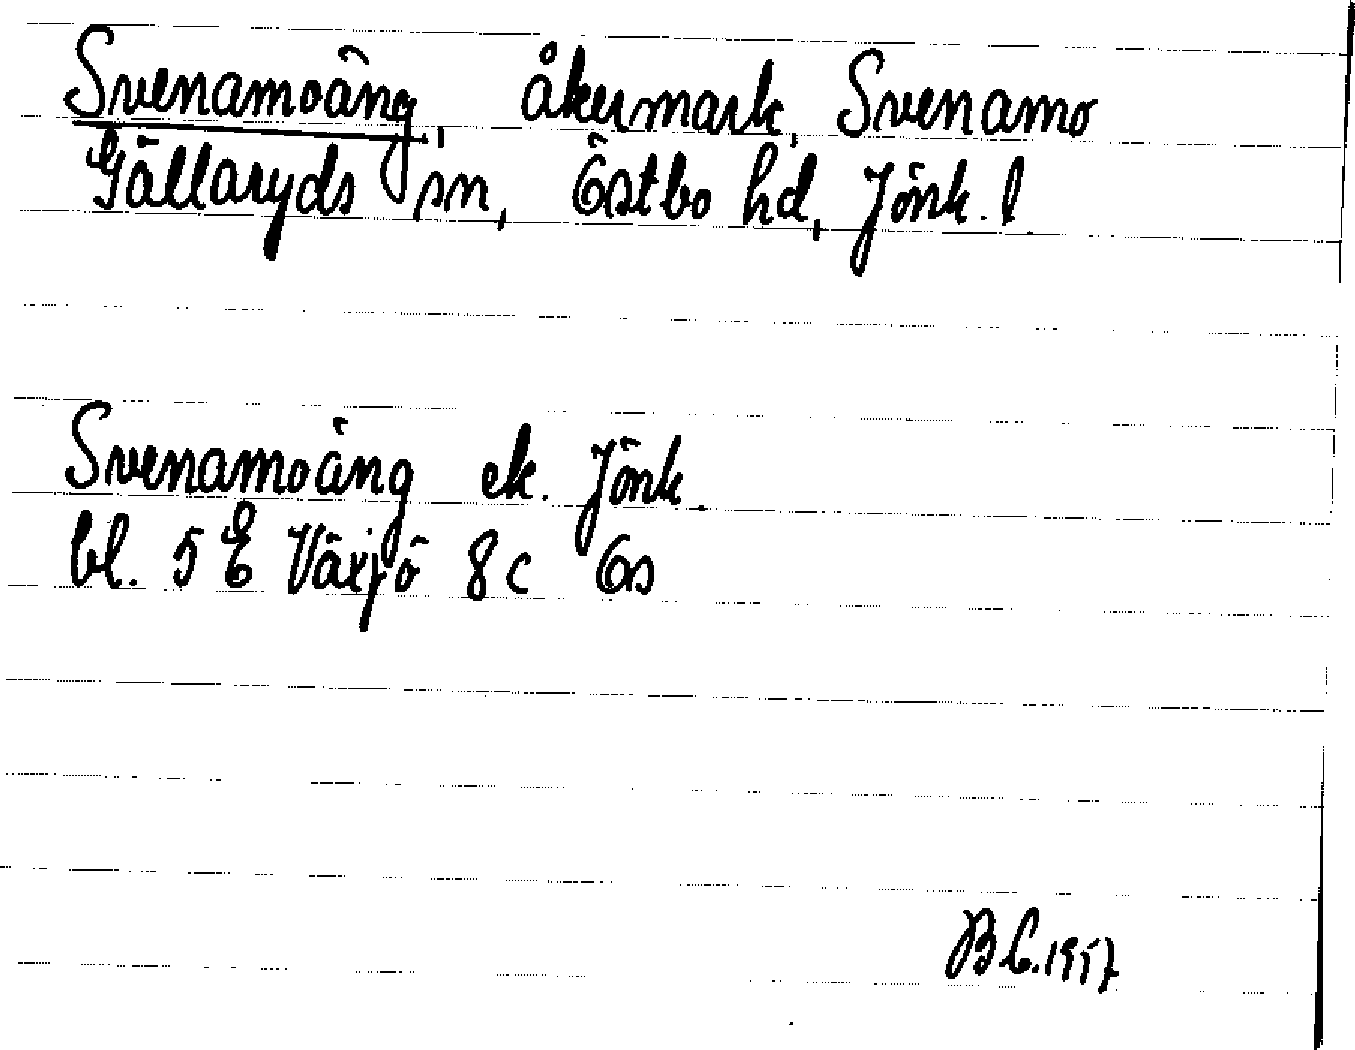 Svenamoäng, åkermark, Svenamo
Gällaryds sn, Östbo hd, Jönk. l.
Svenamoäng ek. Jönk.
bl. 5 E Växjö 8 c Ös
B.C. 1957